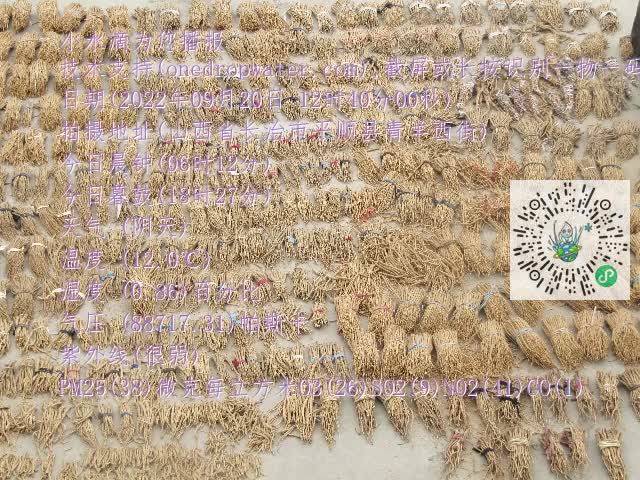 小水滴为您播报
技术支持(onedropwater.com) 截屏或长按识别一物一码
日期(2022年09月20日 12时10分06秒)
拍摄地址(山西省长治市平顺县青羊西街)
今日晨钟(06时12分)
今日暮鼓(18时27分)
天气 (阴天)
温度 (12.0℃)
湿度 (0.86)百分比
气压 (88717.31)帕斯卡
紫外线(很弱)
PM25(38)微克每立方米O3(26)SO2(9)NO2(11)CO(1)